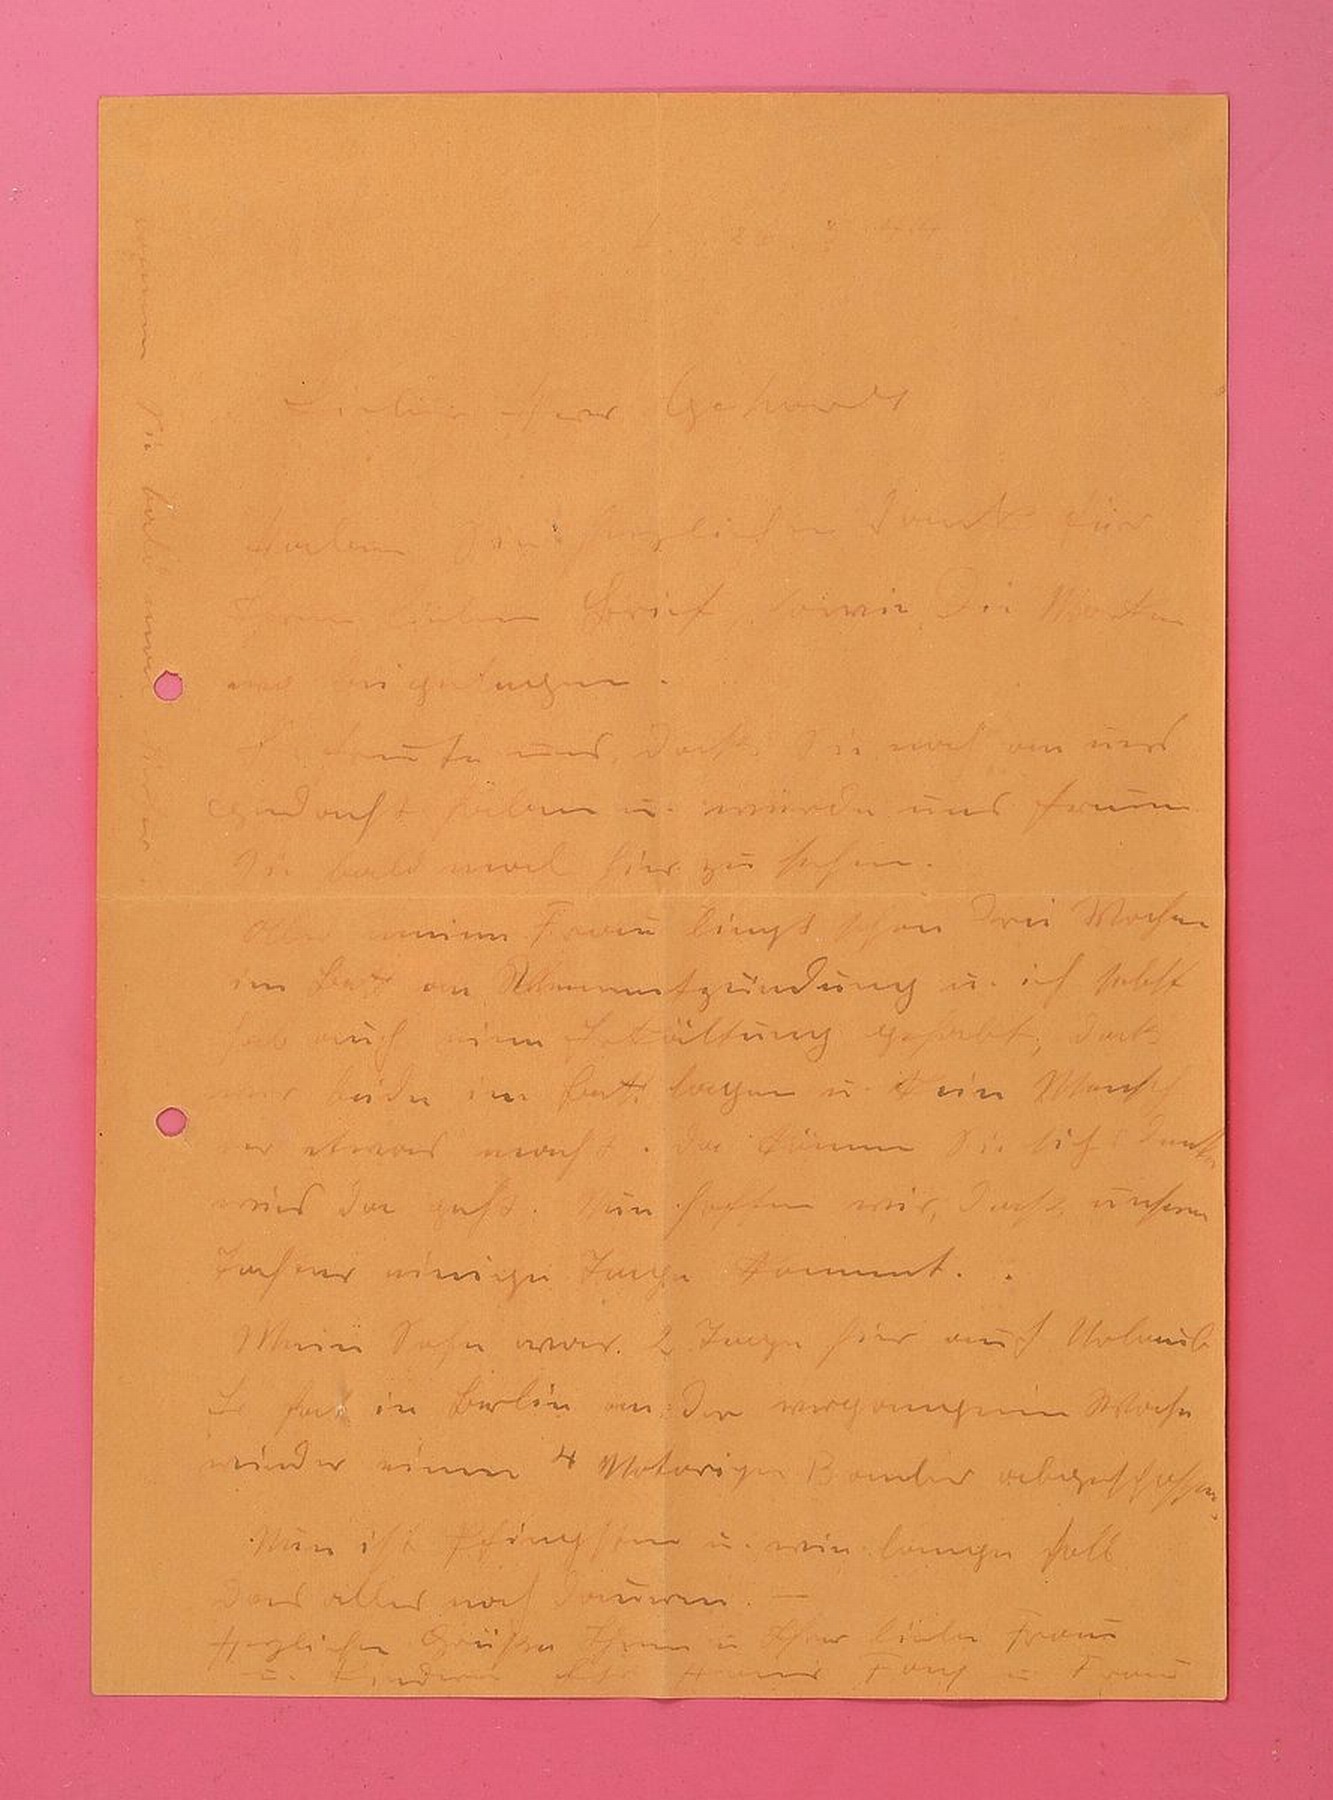 Lieber Herr Gehrardt
Haben Sie herzlichen Dank für
Ihren lieben Brief, sowie die Marken
beigelegen.
Es freute uns, dass Sie noch an uns
gedacht haben u. würde uns freuen
Sie bald mal hier zu sehen.
Aber meine Frau liegt schon drei Wochen
im Bett an Venenentzündung u. ich selbst
hab auch eine Erkältung gehabt, dass
wir beide im Bett lagen u. kein Mensch
der etwas macht. da können Sie sich denken
wies da geht. Nun hoffen wir, dass unsere
Tochter einige Tage kommt.
Mein Sohn war 2 Tage hier auf Urlaub
Er hat in Berlin an der vergangenen Woche
wieder einen 4 Motorigen Bomber abgeschossen.
Nun ist Pfingsten u. wie lange soll
das alles noch dauern. —
Herzliche Grüße Ihnen u Ihrer lieben Frau
u. Kindern Ihr u Frau
kommen Sie bald mal wieder.